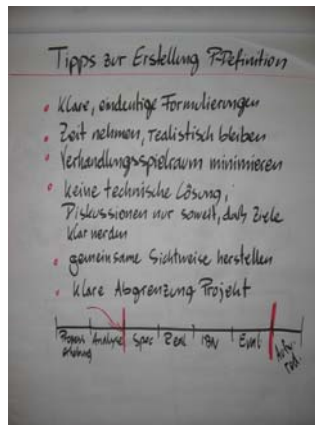 Tipps zur Erstellung P-Definition
Klare, eindeutige Formulierungen
Zeit nehmen, realistisch bleiben
Verhandlungsspielraum minimieren
keine technische Lösung,
Diskussionen nur soweit, daß Ziele
klar werden
gemeinsame Sichtweise herstellen
klare Abgrenzung Projekt
Analyse Spec Real IBN